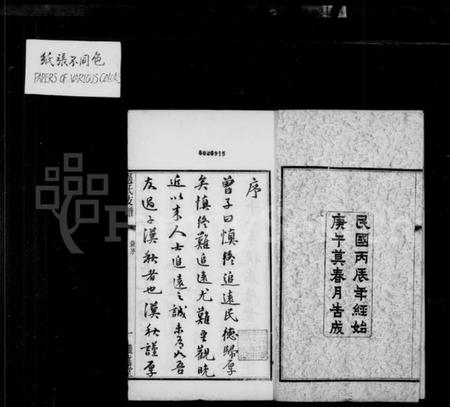 紙張不同色
PAPERS OF VARIOUS COLORS
民國丙辰年經始
庚午冀春月告成
序
曾子曰慎終追遠民德歸厚
矣慎終難追遠尤難至觀晚
近以来人士追遠之誠未有以吾
友過子漢秋者也漢秋謹厚
氏支譜
序
一